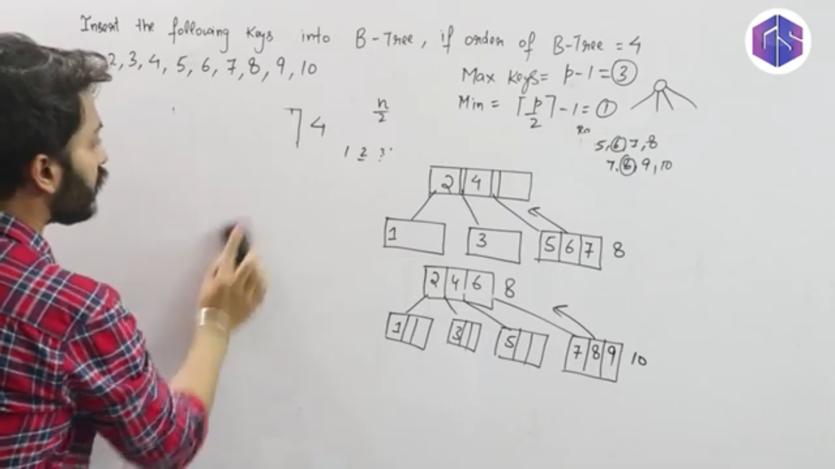 Insert the following keys into B-Tree, if order of B-Tree = 4
2, 3, 4, 5, 6, 7, 8, 9, 10
Max keys = p-1 = 3
Min = ⌈p/2⌉-1 = 1
n/2
4
1 2 3
5, 6, 7, 8
7, 8, 9, 10
2 4
1
3
5 6 7 8
2 4 6 8
1
3
5
7 8 9 10